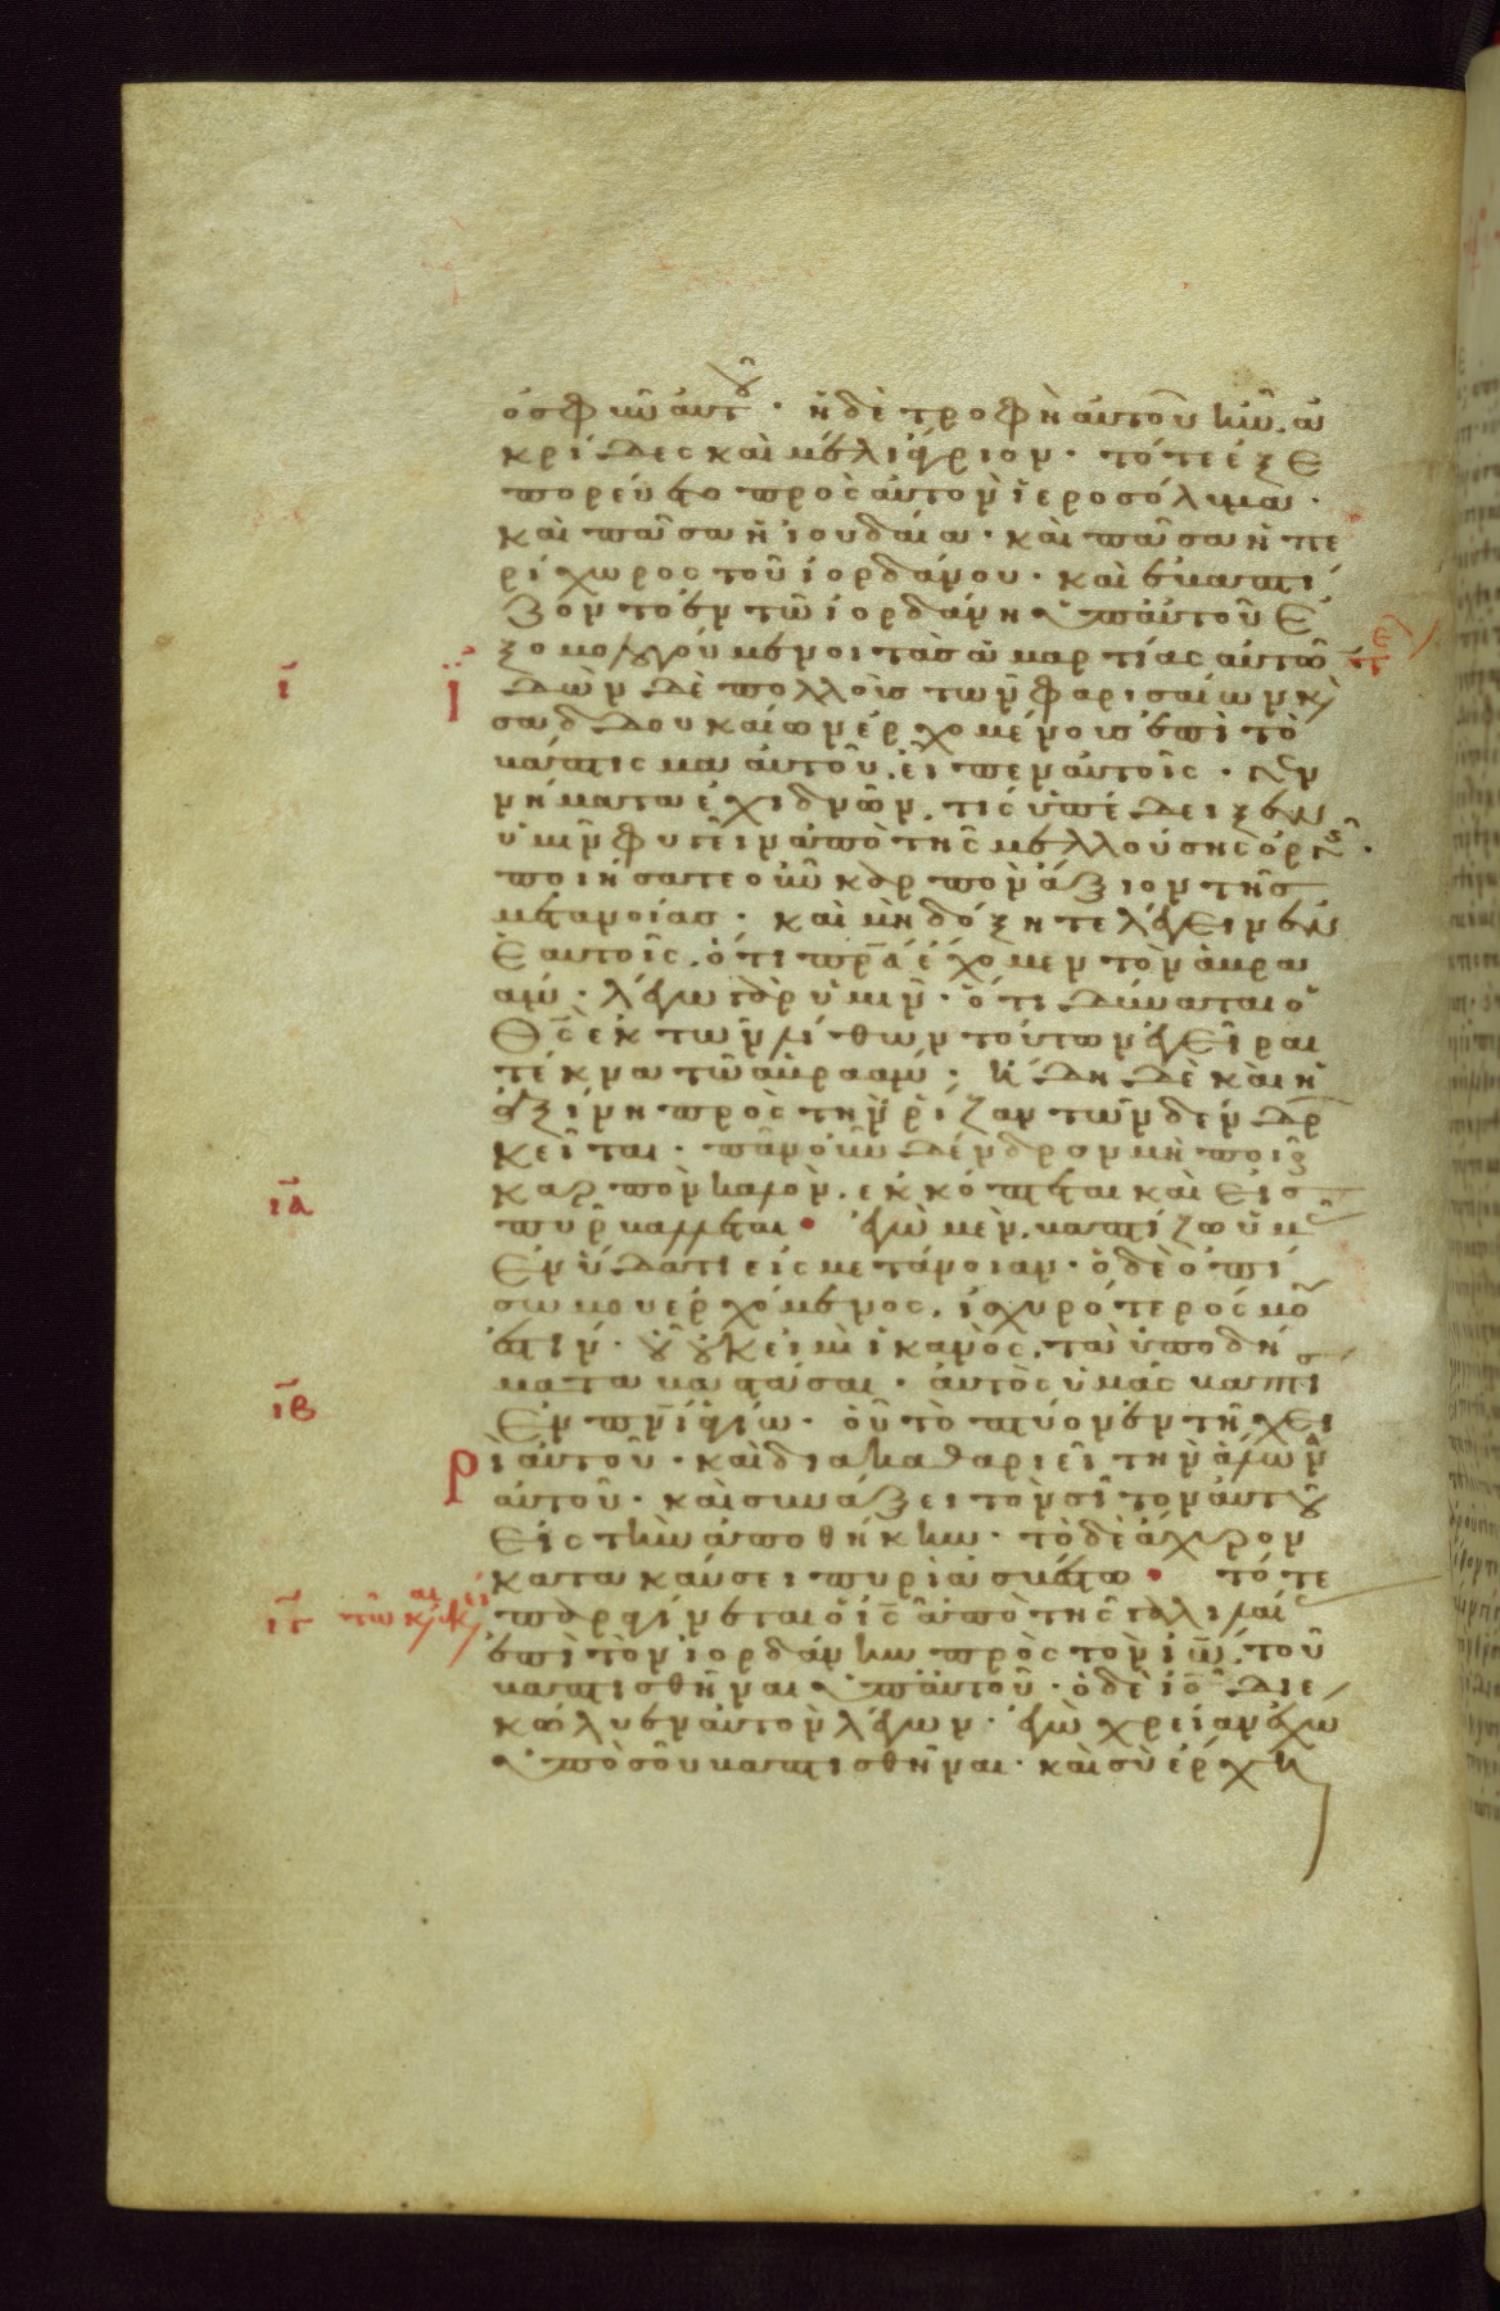 ὀσφῦν αὐτοῦ · ἡ δὲ τροφὴ αὐτοῦ ἦν ἀ
κρίδες καὶ μέλι ἄγριον · τότε ἐξε
πορεύετο πρὸς αὐτὸν ἱεροσόλυμα ·
καὶ πᾶσα ἡ ἰουδαία · καὶ πᾶσα ἡ πε
ρίχωρος τοῦ ἰορδάνου · καὶ ἐβαπτί
ζοντο ἐν τῶ ἰορδάνη ὑπ αὐτοῦ ἐ
ξομολογούμενοι τὰς ἁμαρτίας αὐτῶ
ϊ Ἰδὼν δὲ πολλοὺς τῶν φαρισαίων κ
σαδδουκαίων ἐρχομένους ἐπὶ τὸ
βάπτισμα αὐτοῦ, εἶπεν αὐτοῖς · γεν
νήματα ἐχιδνῶν, τίς ὑπέδειξεν
ὑμῖν φυγεῖν ἀπὸ τῆς μελλούσης ὀργῆς ·
ποιήσατε οὖν καρπὸν ἄξιον τῆς
μετανοίας · καὶ μὴ δόξητε λέγειν ἐν
ἑαυτοῖς, ὅτι πρα ἔχομεν τὸν ἀβρα
άμ · λέγω γὰρ ὑμῖν · ὅτι δύναται ὁ
θς ἐκ τῶν λίθων τούτων ἐγεῖραι
τέκνα τῶ ἀβραάμ · ἤδη δὲ καὶ ἡ
ἀξίνη πρὸς τὴν ῥίζαν τῶν δένδρ
κεῖται · πᾶν οὖν δένδρον μὴ ποιοῦ
ια καρπὸν καλὸν, ἐκκόπτεται καὶ εἰς
πῦρ βάλλεται · ἐγὼ μὲν, βαπτίζω ὑμ
ἐν ὕδατι εἰς μετάνοιαν · ὁ δὲ ὀπί
σω μου ἐρχόμενος, ἰσχυρότερός μου
ἐστιν · οὗ οὐκ εἰμὶ ἱκανὸς, τὰ ὑποδή
ματα βαστάσαι · αὐτὸς ὑμᾶς βαπτίσ
ιβ ἐν πνι ἁγίω · οὗ τὸ πτύον ἐν τῆ χει
ρὶ αὐτοῦ · καὶ διακαθαριεῖ τὴν ἅλωνα
αὐτοῦ · καὶ συνάξει τὸν σῖτον αὐτοῦ
εἰς τὴν ἀποθήκην · τὸ δὲ ἄχυρον
κατακαύσει πυρὶ ἀσβέστω · τότε
ιγ παραγίνεται ὁ ις ἀπὸ τῆς γαλιλαί
ἐπὶ τὸν ἰορδάνην πρὸς τὸν ιω, τοῦ
βαπτισθῆναι ὑπ αὐτοῦ · ὁ δὲ ιω διε
κώλυεν αὐτὸν λέγων · ἐγὼ χρείαν ἔχω
ὑπὸ σοῦ βαπτισθῆναι · καὶ σὺ ἔρχη